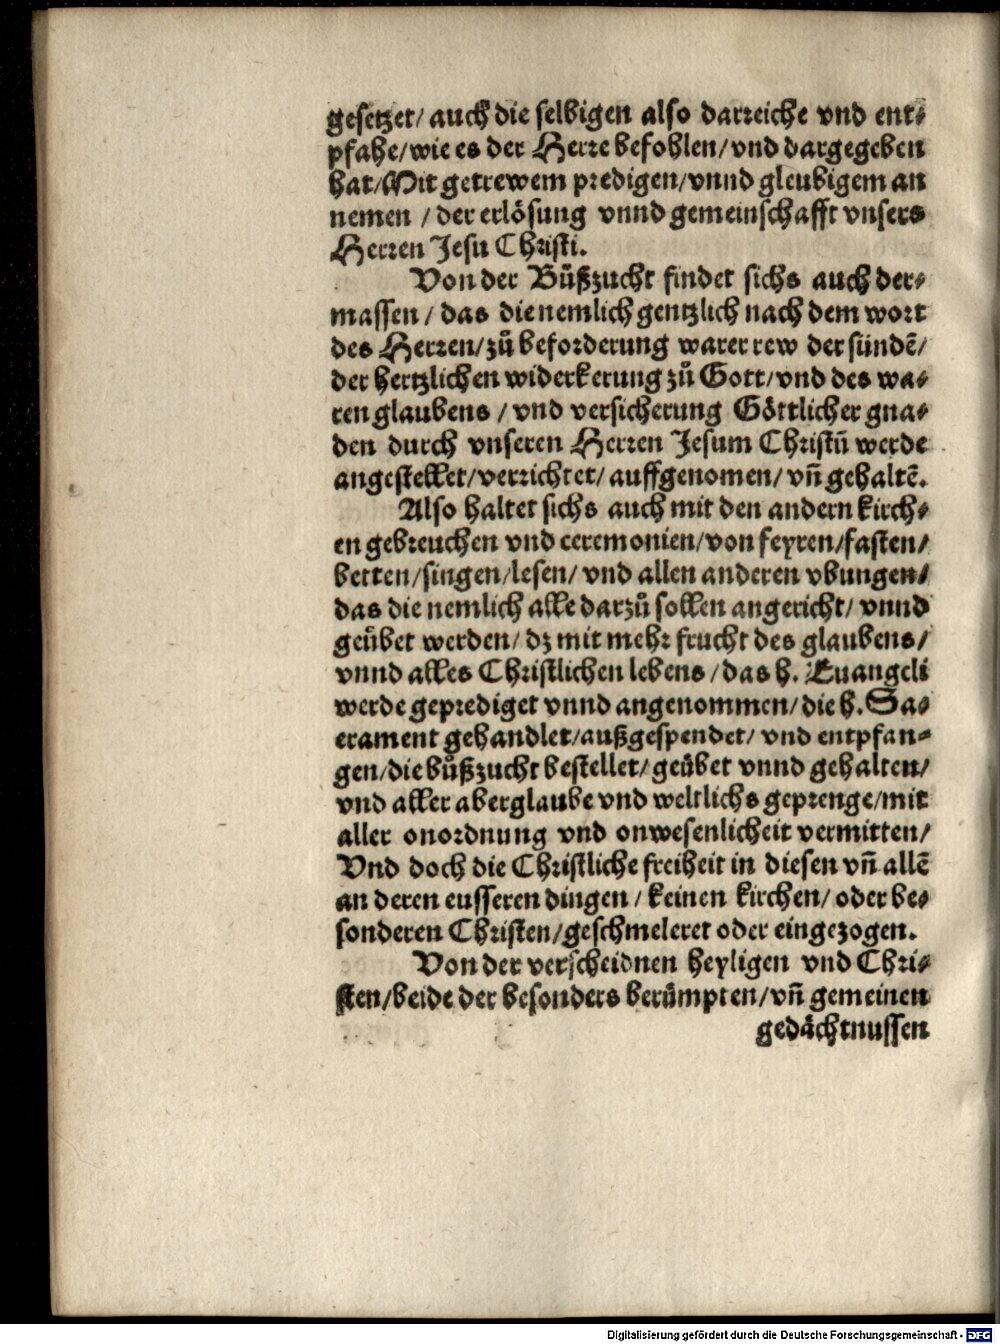 gesetzet/ auch die selbigen also darreiche vnd ent⸗
pfahe/wie es der Herre befohlen/vnd dargegeben
hat/Mit getrewem predigen/vnnd gleubigem an
nemen / der erlösung vnnd gemeinschafft vnsers
Herren Jesu Christi.
Von der Bůßzucht findet sichs auch der⸗
massen / das die nemlich gentzlich nach dem wort
des Herren/zů beforderung warer rew der sündē/
der hertzlichen widerkerung zů Gott/vnd des wa⸗
ren glaubens / vnd versicherung Göttlicher gna⸗
den durch vnseren Herren Jesum Christū werde
angestellet/verrichtet/ auffgenomen/ vñ gehaltē.
Also haltet sichs auch mit den andern kirch⸗
en gebreuchen vnd ceremonien/von feyren/fasten/
betten/singen/lesen/ vnd allen anderen vbungen/
das die nemlich alle darzů sollen angericht/ vnnd
geübet werden/ dz mit mehr frucht des glaubens/
vnnd alles Christlichen lebens /das h. Euangeli
werde geprediget vnnd angenommen/ die h. Sa⸗
crament gehandlet/außgespendet/ vnd entpfan⸗
gen/die bůßzucht bestellet/geübet vnnd gehalten/
vnd aller aberglaube vnd weltlichs geprenge/mit
aller onordnung vnd onwesenlicheit vermitten/
Vnd doch die Christliche freiheit in diesen vñ allē
an deren eusseren dingen / keinen kirchen/ oder be⸗
sonderen Christen/geschmeleret oder eingezogen.
Von der verscheidnen heyligen vnd Chri⸗
sten/beide der besonders berümpten/vñ gemeinen
gedächtnussen
Digitalisierung gefördert durch die Deutsche Forschungsgemeinschaft - DFG